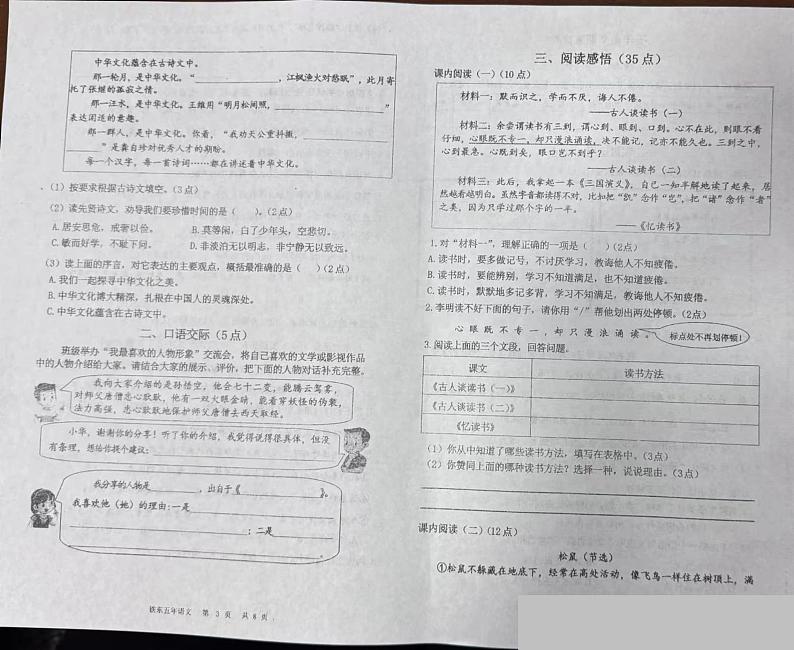 中华文化蕴含在古诗文中。
那一轮月，是中华文化。“____________，江枫渔火对愁眠”，此月寄
托了张继的孤寂之情。
那一汪水，是中华文化。王维用“明月松间照，____________”
表达闲适的意趣。
那一群人，是中华文化。你看，“我劝天公重抖擞，____________
______”是龚自珍对优秀人才的期盼。
每一个汉字，每一首诗词……都在讲述着中华文化。
（1）按要求根据古诗文填空。（3点）
（2）读先贤诗文，劝导我们要珍惜时间的是（ ）。（2点）
A. 居安思危，戒奢以俭。 B. 莫等闲，白了少年头，空悲切。
C. 敏而好学，不耻下问。 D. 非淡泊无以明志，非宁静无以致远。
（3）读上面的序言，对它表达的主要观点，概括最准确的是（ ）（2点）
A. 我们一起探寻中华文化之美。
B. 中华文化博大精深，扎根在中国人的灵魂深处。
C. 中华文化蕴含在古诗文中。
二、口语交际（5点）
班级举办“我最喜欢的人物形象”交流会，将自己喜欢的文学或影视作品
中的人物介绍给大家。请结合大家的展示、评价，把下面的人物对话补充完整。
我向大家介绍的是孙悟空，他会七十二变，能腾云驾雾，
对师父唐僧忠心耿耿，他有一双火眼金睛，能看穿妖怪的伪装，
法力高强，忠心耿耿地保护师父唐僧去西天取经。
小华，谢谢你的分享！听了你的介绍，我觉得说得很具体，但没
有条理，想给你提个建议：
我分享的人物是________，出自于《____________》。
我喜欢他（她）的理由：一是____________
____________；二是____________
铁东五年语文 第 3 页 共 8 页
三、阅读感悟（35点）
课内阅读（一）（10点）
材料一：默而识之，学而不厌，诲人不倦。
——古人谈读书（一）
材料二：余尝谓读书有三到，谓心到、眼到、口到。心不在此，则眼不看
仔细，心眼既不专一，却只漫浪诵读，决不能记，记亦不能久也。三到之中，
心到最急。心既到矣，眼口岂不到乎？
——古人谈读书（二）
材料三：此后，我拿起一本《三国演义》，自己一知半解地读了起来，居
然越看越明白。虽然字音都读得不对，比如把“凯”念作“岂”，把“诸”念作“者”
之类，因为只学过那个字的一半。
——《忆读书》
1. 对“材料一”，理解正确的一项是（ ）（2点）
A. 读书时，要多做记号，不讨厌学习，教诲他人不知疲倦。
B. 读书时，要能辨别，学习不知道满足，也不知道疲倦。
C. 读书时，默默地多记多背，学习不知满足，教诲他人不知疲倦。
2. 李明读不好下面的句子，请你用“/”帮他划出两处停顿。（2点）
心 眼 既 不 专 一 ，却 只 漫 浪 诵 读 。
标点处不再划停顿！
3. 阅读上面的三个文段，回答问题。
课文 读书方法
《古人谈读书（一）》
《古人谈读书（二）》
《忆读书》
（1）你从中知道了哪些读书方法，填写在表格中。（3点）
（2）你赞同上面的哪种读书方法？选择一种，说说理由。（3点）
课内阅读（二）（12点）
松鼠（节选）
①松鼠不躲藏在地底下，经常在高处活动，像飞鸟一样住在树顶上，满